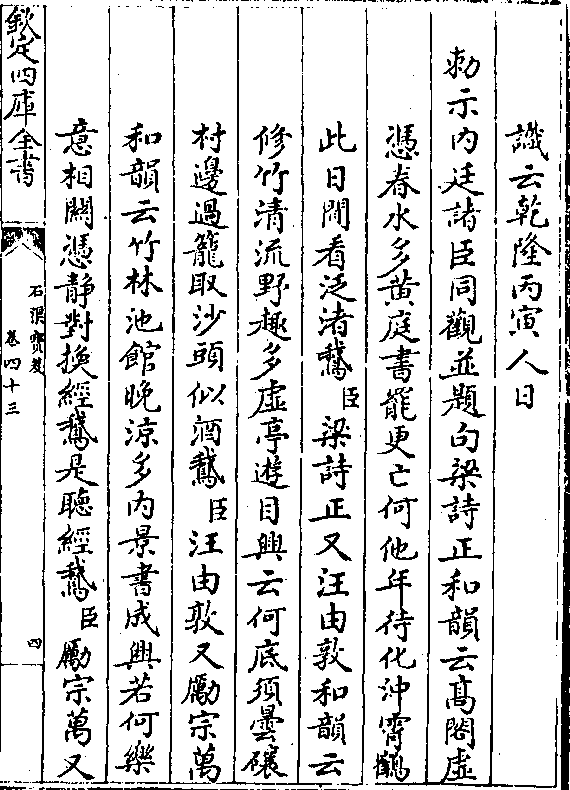 識云乾隆丙寅人日
勅示内廷諸臣同觀並題句梁詩正和韻云髙閣虛
憑春水多黄庭書罷更亡何他年待化沖霄鶴
此日閒看泛渚鵞臣梁詩正又汪由敦和韻云
修竹清流野趣多虛亭遊目興云何底須曇礳
村邊過籠取沙頭似酒鵞臣汪由敦又勵宗萬
和韻云竹林池館晚涼多内景書成興若何樂
意相關憑静對換經鵞是聽經鵞臣勵宗萬又
欽定四庫全書
石渠寶笈
卷四十三
四